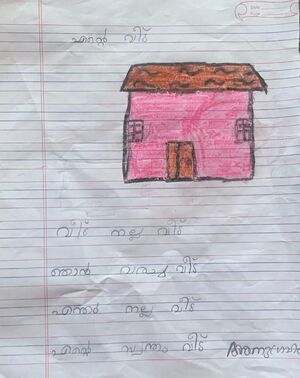 എന്റെ വീട്
വീട് നല്ല വീട്
ഞാൻ വരച്ച വീട്
എന്തൊരു നല്ല വീട്
എന്റെ സ്വന്തം വീട്